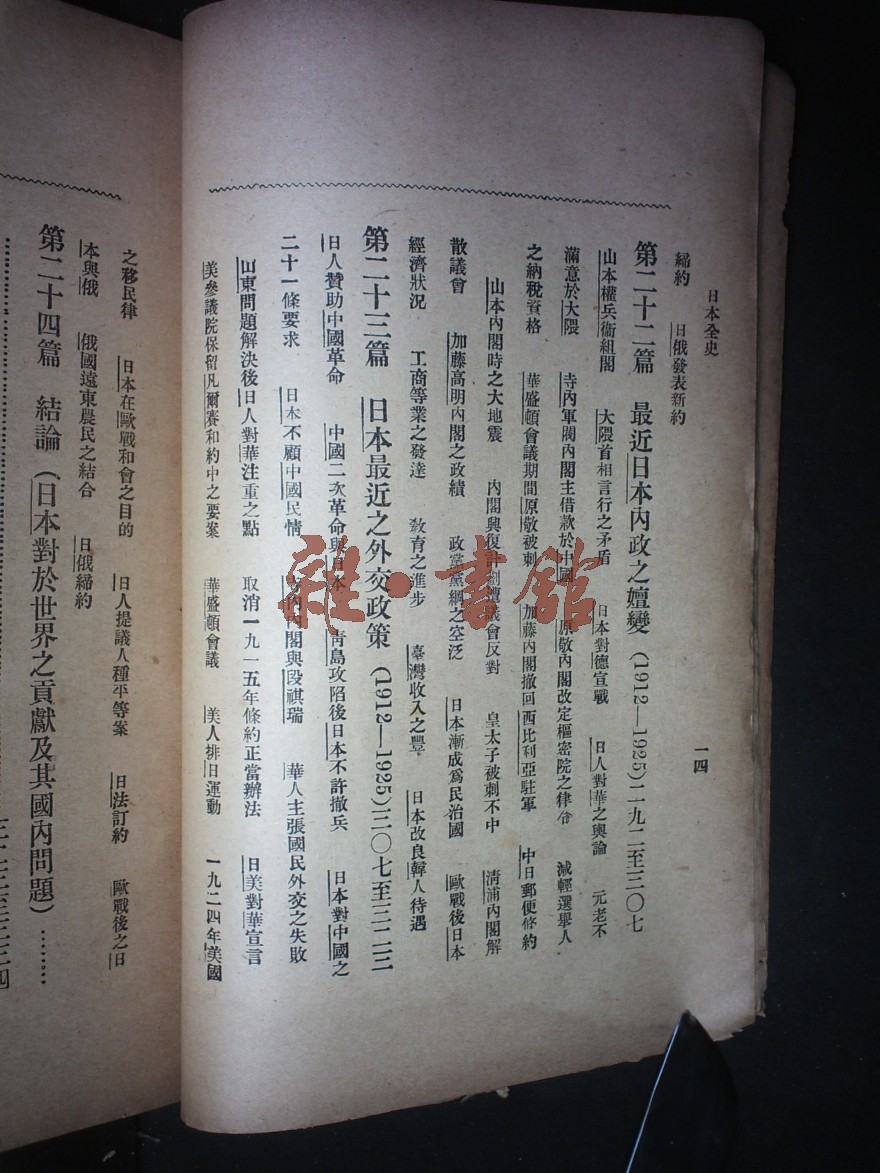 日本全史
一四
締約　日俄發表新約
第二十二篇　最近日本內政之嬗變（1912—1925）二九二至三〇七
山本權兵衞組閣　大隈首相言行之矛盾　日本對德宣戰　日人對華之輿論　元老不
滿意於大隈　寺內軍閥內閣主借款於中國　原敬內閣改定樞密院之律令　減輕選舉人
之納稅資格　華盛頓會議期間原敬被刺　加藤內閣撤回西比利亞駐軍　中日郵便條約
山本內閣時之大地震　內閣興復計劃遭議會反對　皇太子被刺不中　清浦內閣解
散議會　加藤高明內閣之政績　政黨黨綱之空泛　日本漸成爲民治國　歐戰後日本
經濟狀況　工商等業之發達　敎育之進步　臺灣收入之豐　日本改良韓人待遇
第二十三篇　日本最近之外交政策（1912—1925）三〇七至三二三
日人贊助中國革命　中國二次革命與日本　靑島攻陷後日本不許撤兵　日本對中國之
二十一條要求　日本不顧中國民情　寺內內閣與段祺瑞　華人主張國民外交之失敗
山東問題解決後日人對華注重之點　取消一九一五年條約正當辦法　日美對華宣言
美參議院保留凡爾賽和約中之要案　華盛頓會議　美人排日運動　一九二四年美國
之移民律　日本在歐戰和會之目的　日人提議人種平等案　日法訂約　歐戰後之日
本與俄　俄國遠東農民之結合　日俄締約
第二十四篇　結論（日本對於世界之貢獻及其國內問題）………
雜·書館